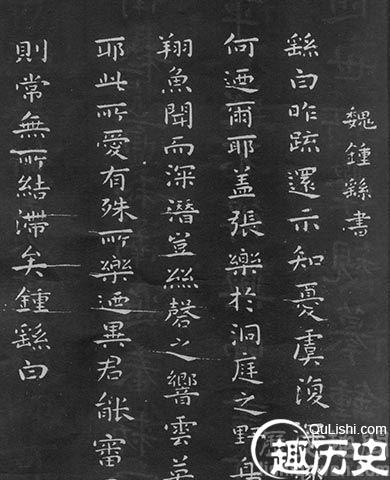 魏鍾繇書
繇白昨疏還示知憂虞復
何迺爾耶盖張樂於洞庭之野
翔魚聞而深潛豈絲磬之響雲英
耶此所愛有殊所樂迺異君能審
則常無所結滯矣鍾繇白
QuLishi.com
趣历史